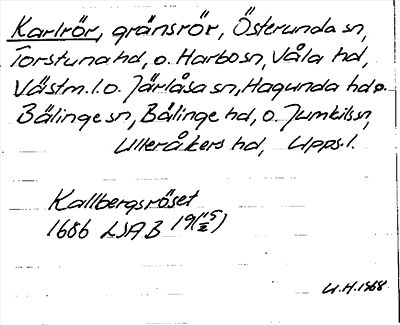 Karlrör, gränsrör, Österunda sn,
Torstuna hd, o. Harbo sn, Våla hd,
Västm. l. o. Järlåsa sn, Hagunda hd o.
Bälinge sn, Bälinge hd, o. Jumkils sn,
Ulleråkers hd, Upps. l.
Kallbergsröset
1686 LSA B 19(15/2)
U.H. 1968